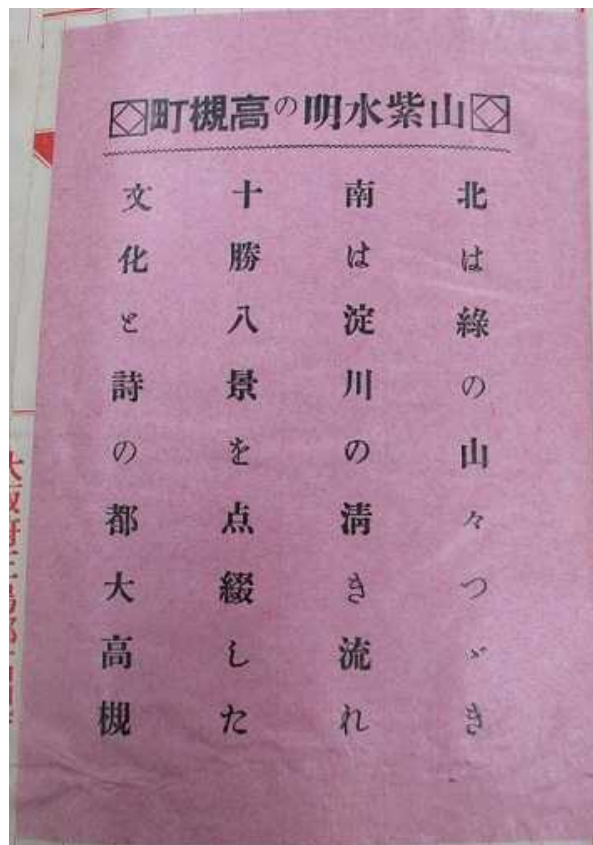 山紫水明の高槻町
北は綠の山々つゞき
南は淀川の淸き流れ
十勝八景を点綴した
文化と詩の都大高槻